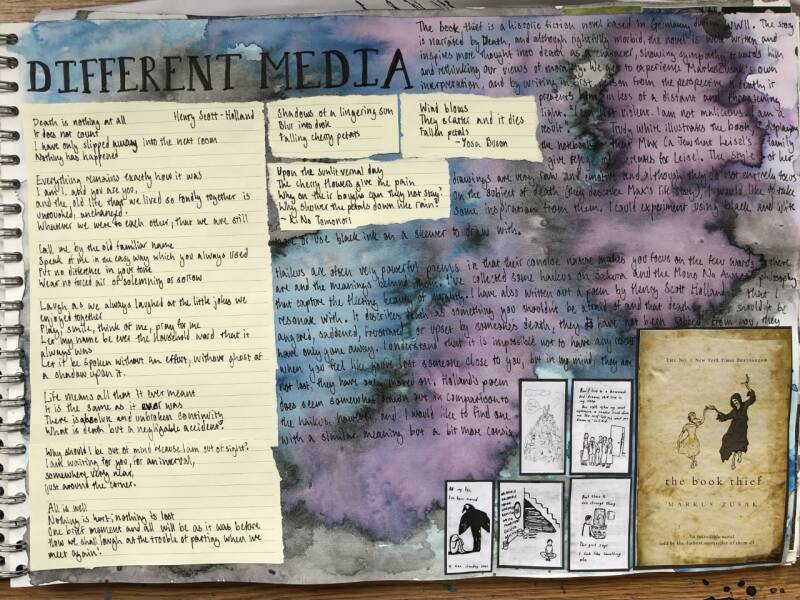 DIFFERENT MEDIA
The book thief is a historic fiction novel based in Germany during WWII. The story
is narrated by Death, and although rightfully morbid, the novel is well written and
inspires more thought into death as a character, showing sympathy towards him
and rethinking our views of morality. We get to experience Markus Zusak's own
interpretation and by writing in first person from the perspective of death it
presents him in less of a distant and threatening
light. not violent. I am not malicious. I am a
result Trudy White illustrates the book, displaying
the notebooks that Max Leisel's family
give for Leisel. The style of her
drawings are very raw and emotive and although they do not entirely focus
on the subject of death (they describe Max's life story) I would like to take
some inspiration from them. I could experiment using black and white
or use black ink on a skewer to draw with.
Haikus are often very powerful poems in that their concise nature makes you focus on the few words there
are and the meanings behind them. I've collected some haikus on Sakura and the Mono No Aware philosophy
that capture the fleeting beauty of I have also written out a poem by Henry Scott Holland that
resonate with. It describes death as something you shouldn't be afraid of and that death shouldn't be
angered, saddened, frustrated or upset by someone's death, they have not been from you, they
have only gone away. I understand that it is impossible not to have any
when you feel like you've lost someone close to you, but in my mind, they are
not lost they have only moved on. Holland's poem
does seem somewhat drawn out in comparison to
the haikus, however, and I would like to find one
with a similar meaning but a bit more concise.
Death is nothing at all Henry Scott-Holland
It does not count
I have only slipped away into the next room
Nothing has happened
Everything remains exactly how it was
I am I, and you are you,
and the old life that we lived so fondly together is
untouched, unchanged.
Whatever we were to each other, that we are still
Call me by the old familiar name
Speak of me in the easy way which you always used
Put no difference in your tone
Wear no forced air of solemnity or sorrow
Laugh as we always laughed at the little jokes we
enjoyed together
Play, smile, think of me, pray for me
Let my name be ever the household word that it
always was
Let it be spoken without an effort, without ghost of
a shadow upon it.
Life means all that it ever meant
It is the same as it ever was
There is absolute and unbroken continuity
What is death but a negligable accident?
Why should I be out of mind because I am out of sight?
I am waiting for you, for an interval,
somewhere very near,
just around the corner.
All is well
Nothing is hurt; nothing is lost
One brief moment and all will be as it was before
How we shall laugh at the trouble of parting when we
meet again!
Shadows of a lingering sun
Blur into dusk
Falling cherry petals
Wind blows
They scatter and it dies
Fallen petals
- Yosa Buson
Upon the sunlit vernal day
The cherry flowers give me pain
Why on their boughs can they not stay?
Why shower the petals down like rain?
- Ki No Tomonori
All my life,
I've been scared
But there is
one strange thing.
The girl says
I look like something
else
the book thief
MARKUS ZUSAK
An incredible novel
told by the darkest storyteller of them all